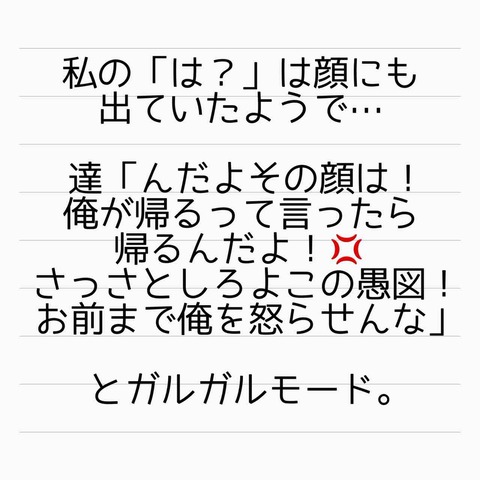 私の「は？」は顔にも
出ていたようで…
達「んだよその顔は！
俺が帰るって言ったら
帰るんだよ！💢
さっさとしろよこの愚図！
お前まで俺を怒らせんな」
とガルガルモード。